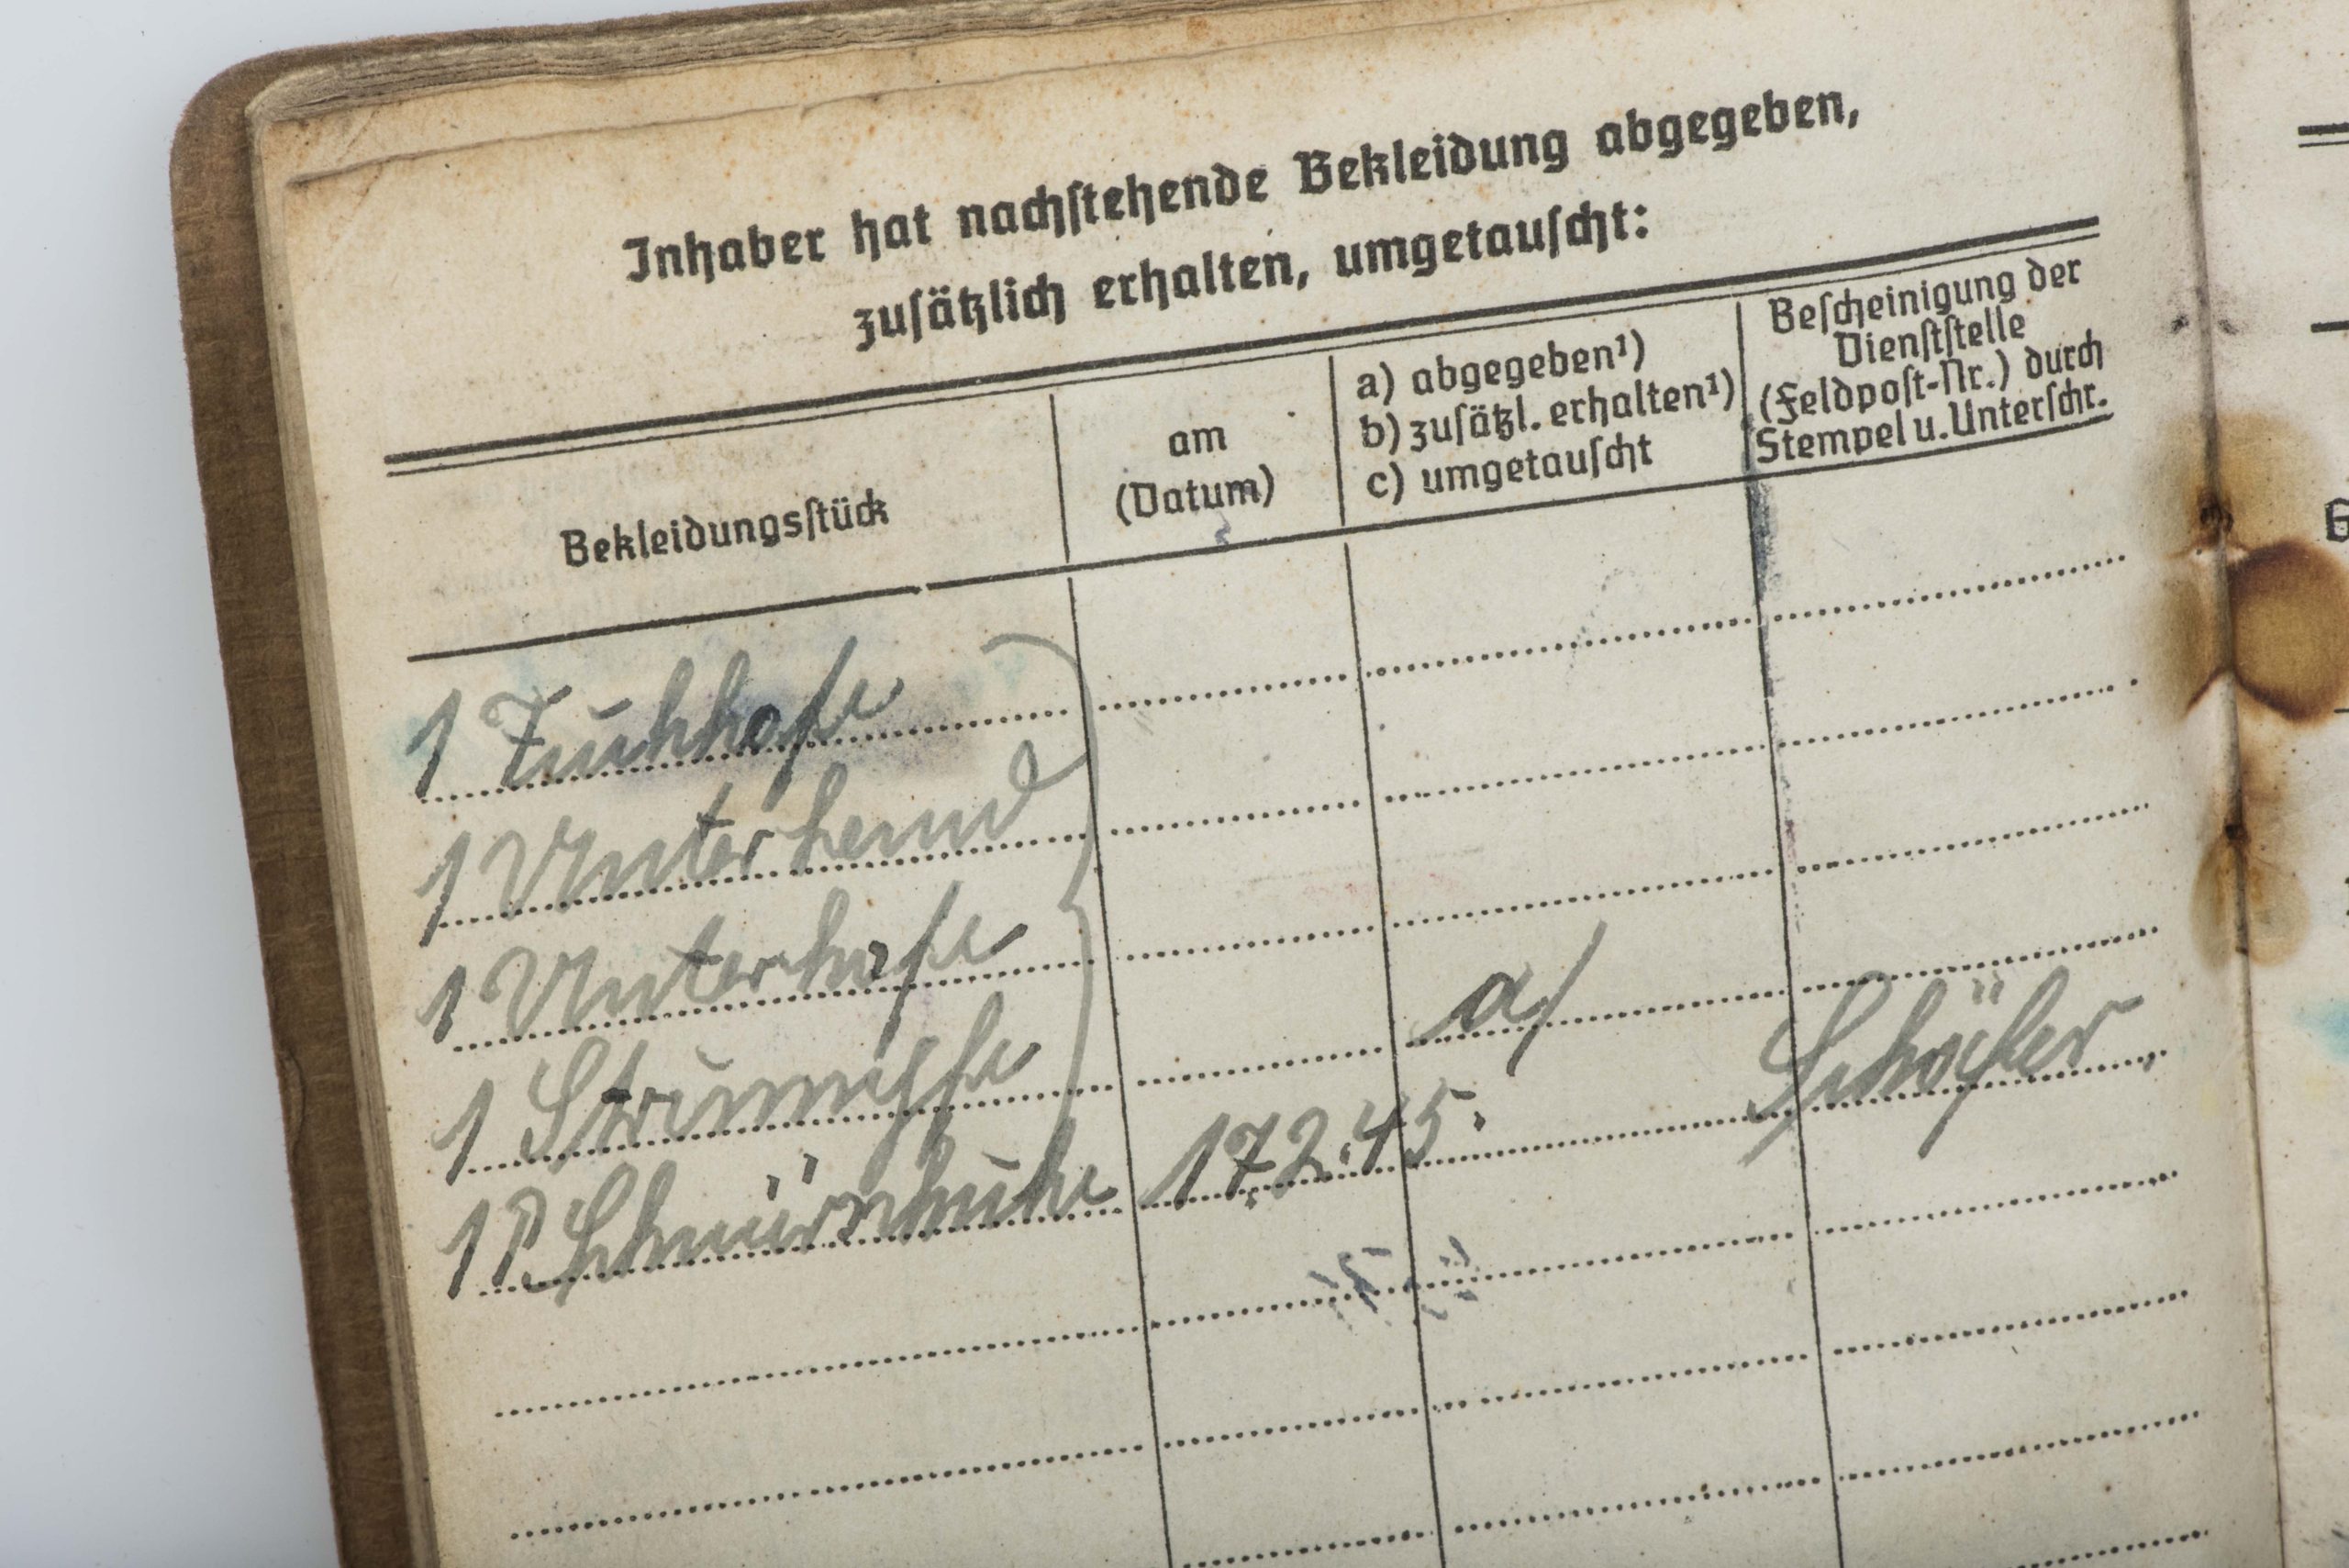 Inhaber hat nachstehende Bekleidung abgegeben,
zusätzlich erhalten, umgetauscht:
Bekleidungsstück
am
(Datum)
a) abgegeben¹)
b) zusätzl. erhalten¹)
c) umgetauscht
Bescheinigung der
Dienststelle
(Feldpost-Nr.) durch
Stempel u. Unterschr.
1 Tuchhose
1 Unterhemd
1 Unterhose
1 Strümpfe
1 P. Schnürschuhe 17.2.45. a) Schäfer